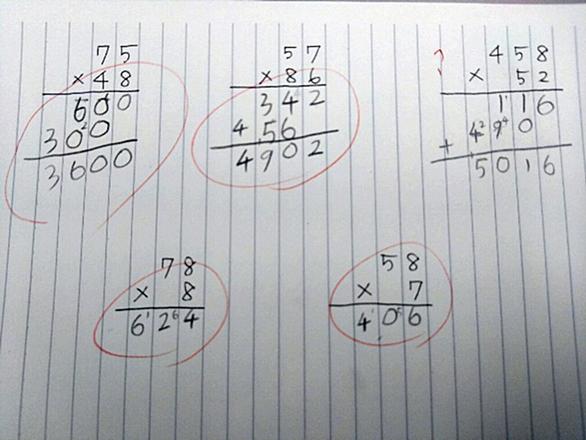 75
×48
600
300
3600
57
×86
342
456
4902
?
458
× 52
116
490
+
5016
78
× 8
624
58
× 7
406